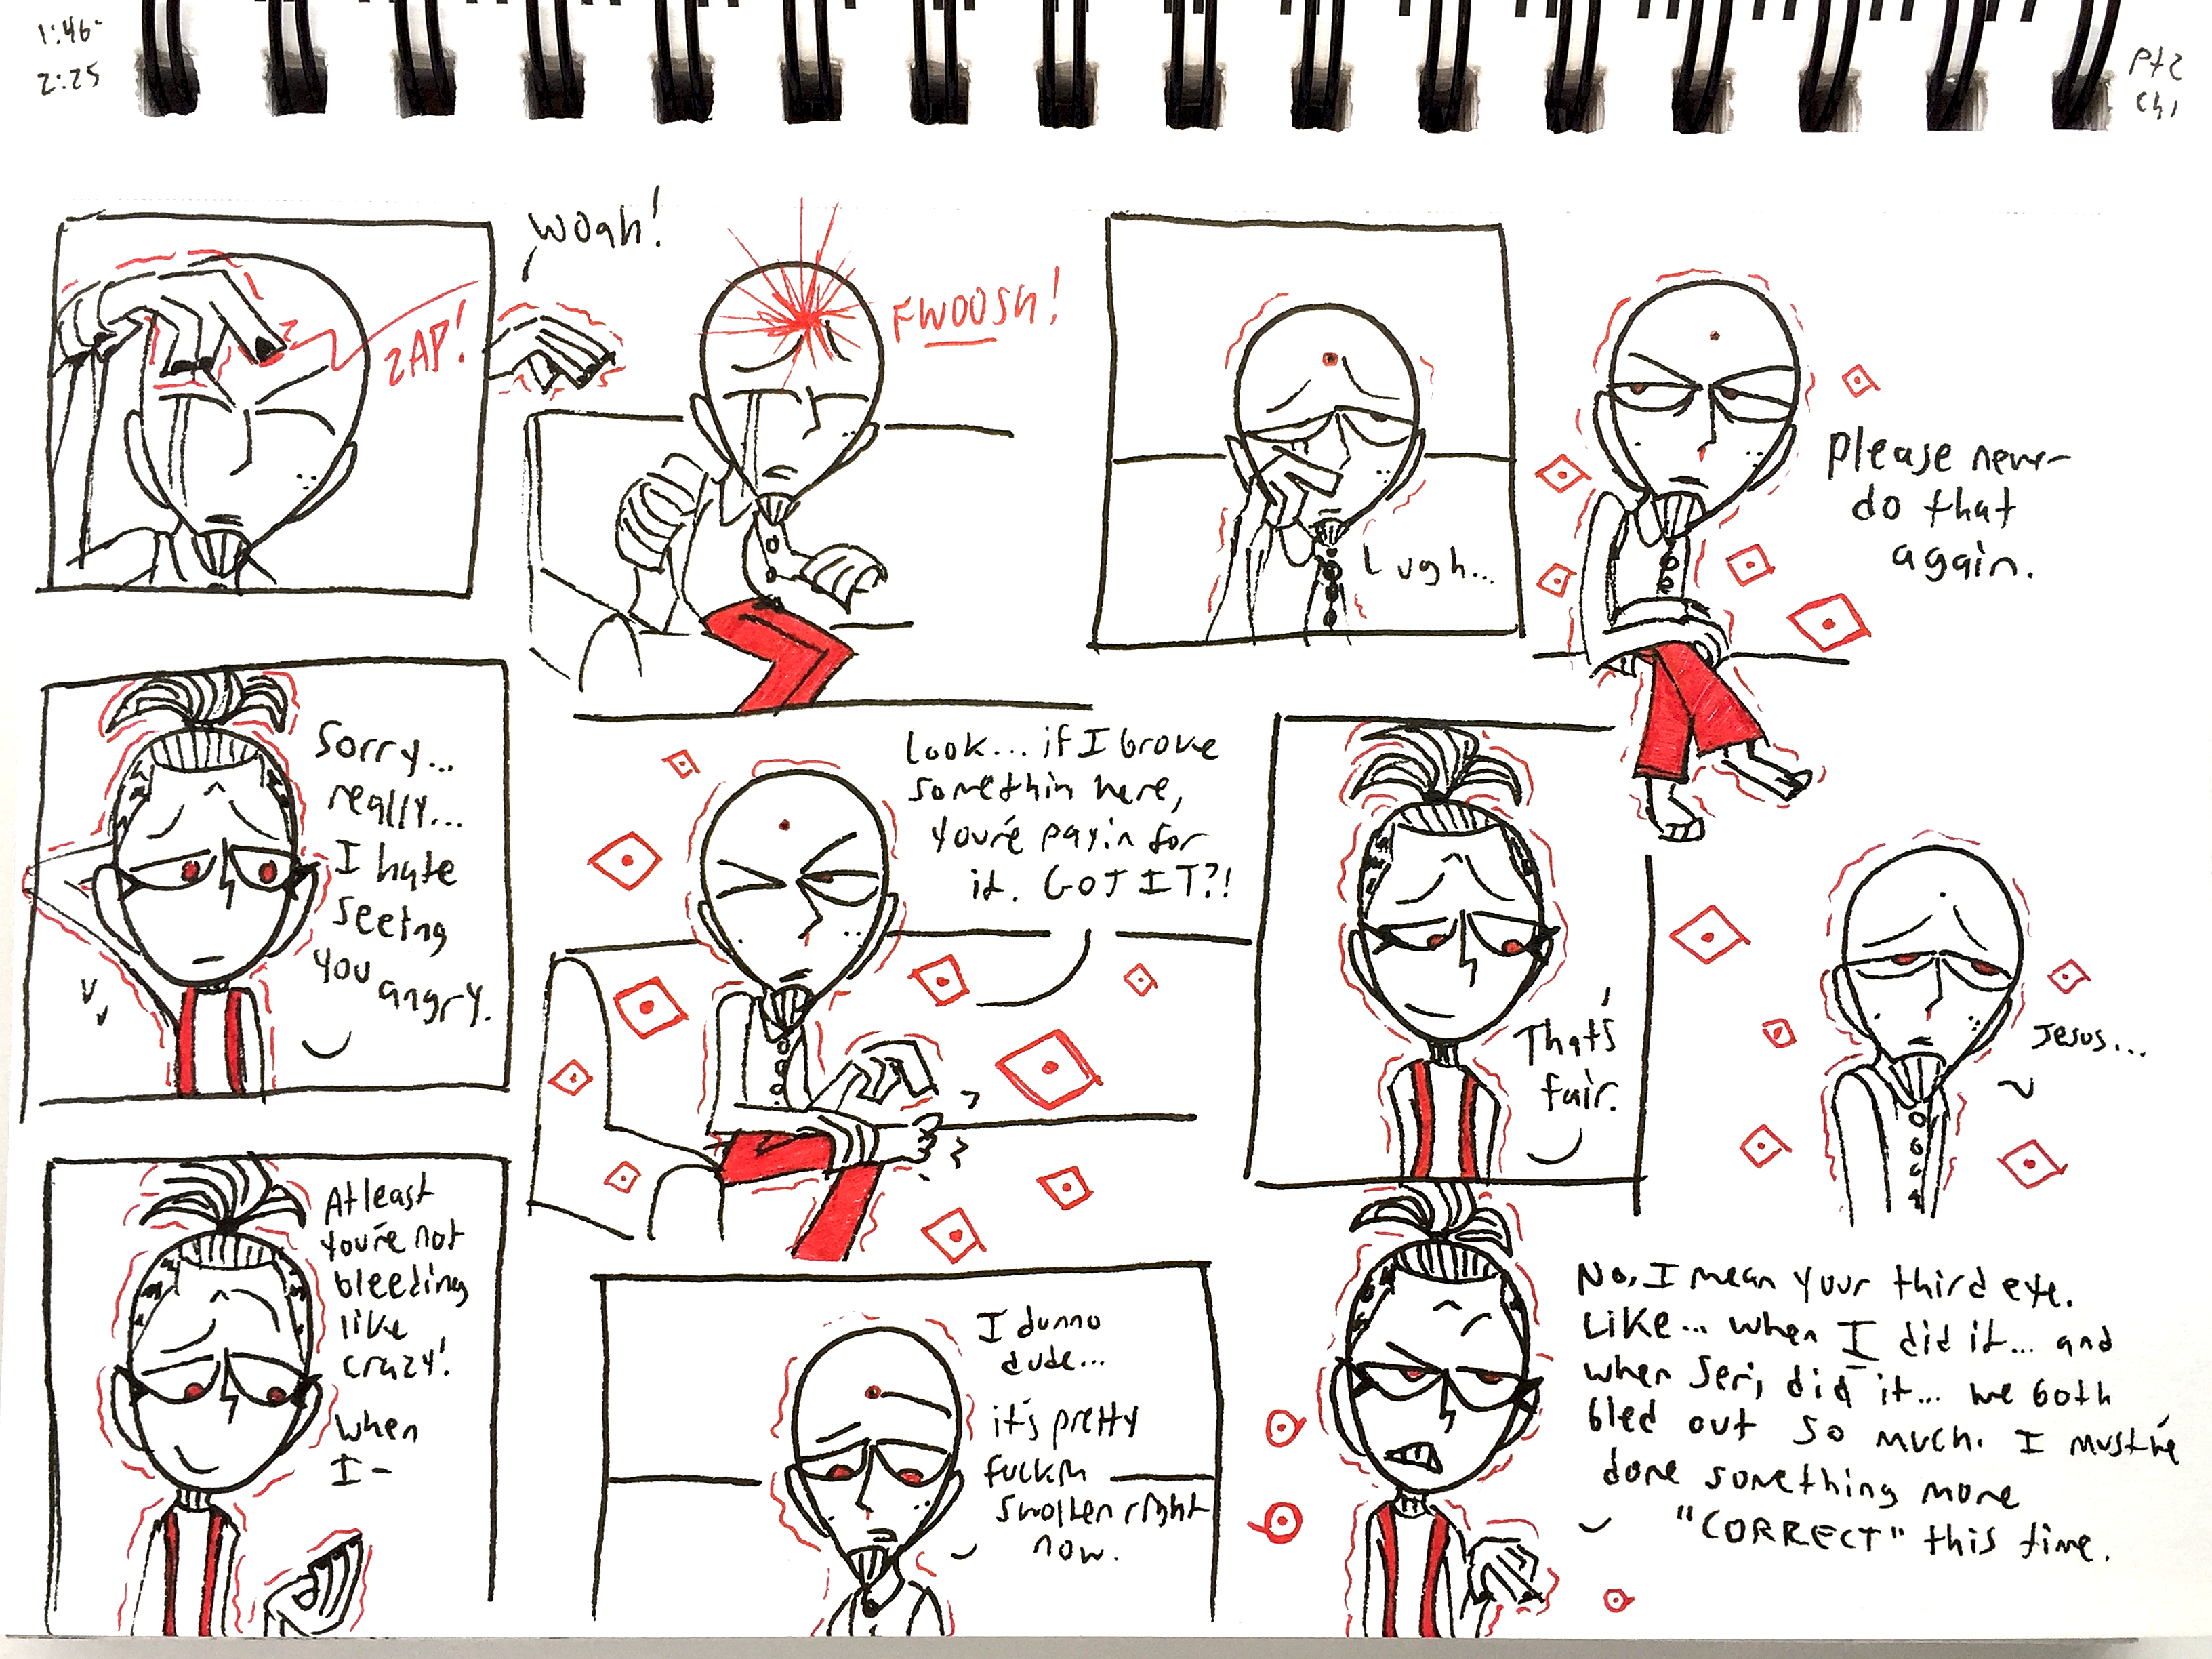 1:46-
2:25
Pt2
Ch1
ZAP!
Woah!
FWOOSH!
Ugh...
Please never
do that
again.
Sorry...
really...
I hate
seeing
you
angry.
Look... if I broke
somethin here,
you're payin for
it. GOT IT?!
That's
fair.
Jesus...
At least
you're not
bleeding
like
crazy!
When
I-
I dunno
dude...
it's pretty
fuckin
swollen right
now.
No, I mean your third eye.
Like... when I did it... and
when Seri did it... we both
bled out so much. I must've
done something more
"CORRECT" this time.